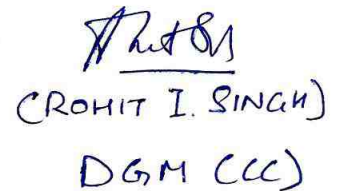 (ROHIT I. SINGH)
DGM (CCC)